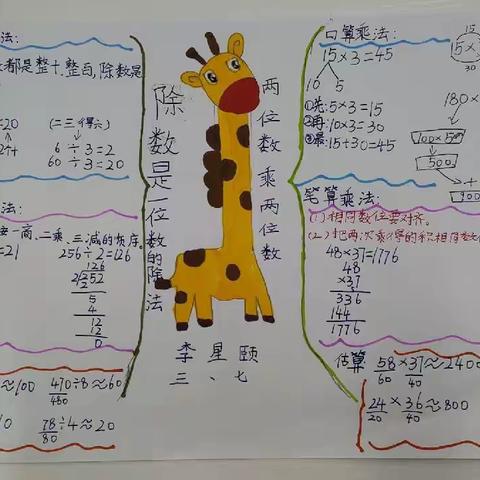 法:
都是整十.整百,除数是
=20
(二三得六)
6÷3=2
60÷3=20
法:
一商、二乘、三.减的顺序.
=21
256÷2=126
126
2252
5
4
12
12
0
≈100
470÷8≈60
480
78÷4≈20
80
除数是一位数的除法
两位数乘两位数
李星颐
三、七
口算乘法:
15×3=45
10 5
①先:5×3=15
②再:10×3=30
③最:15+30=45
15
15×
30
180×
500
+
笔算乘法:
(1)相同数位要对齐。
(2)把两次乘得的积相
48×37=1776
48
×37
336
144
1776
估算
58×37≈2400
60 40
24×36≈800
20 40